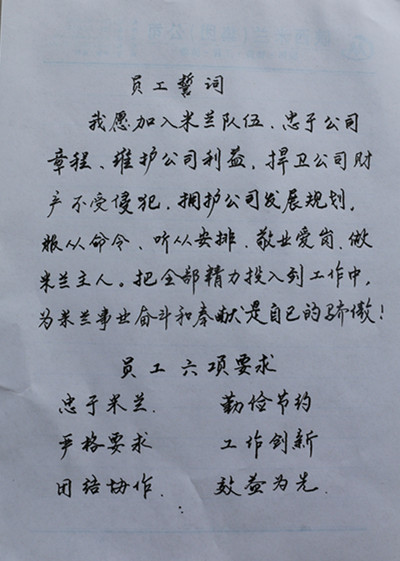 员工誓词
我愿加入米兰队伍、忠于公司
章程、维护公司利益，捍卫公司财
产不受侵犯，拥护公司发展规划。
服从命令、听从安排、敬业爱岗、做
米兰主人。把全部精力投入到工作中，
为米兰事业奋斗和奉献是自己的骄傲！
员工六项要求
忠于米兰. 勤俭节约
严格要求 工作创新
团结协作. 效益为先.